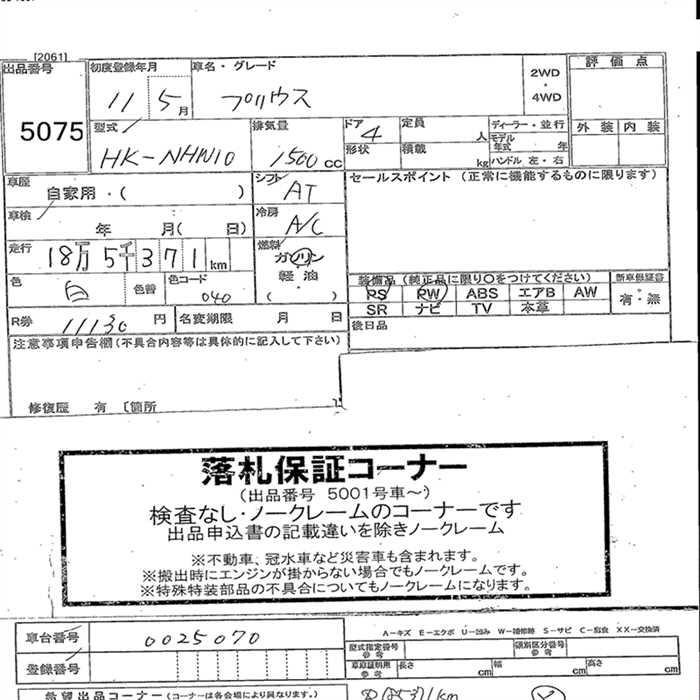 [2061]
出品番号 初度登録年月 車名・グレード 2WD・4WD 評価点
5075 11 5月 プリウス
型式 HK-NHW10 排気量 1500cc ドア 4 定員 人 ディーラー・並行 外装 内装
形状 積載 kg モデル年式 年 ハンドル 左・右
車歴 自家用・( ) シフト AT セールスポイント (正常に機能するものに限ります)
車検 年 月( 日) 冷房 A/C
走行 18万5千371km 燃料 ガソリン・軽油 ( )
色 白 色替 色コード 040
装備品 (純正品に限り○をつけてください) 新車保証書
PS PW ABS エアB AW 有・無
SR ナビ TV 本革
R券 11130円 名変期限 月 日 後日品
注意事項申告欄(不具合内容等は具体的に記入して下さい)
修復歴 有 〔箇所
落札保証コーナー
(出品番号 5001号車~)
検査なし・ノークレームのコーナーです
出品申込書の記載違いを除きノークレーム
※不動車、冠水車など災害車も含まれます。
※搬出時にエンジンが掛からない場合でもノークレームです。
※特殊特装部品の不具合についてもノークレームになります。
A-キズ E-エクボ U-凹み W-補修跡 S-サビ C-腐食 XX-交換済
車台番号 0025070 型式指定番号 参考 類別区分番号 参考
登録番号 車庫証明用 参考 長さ cm 幅 cm 高さ cm
希望出品コーナー (コーナーは各会場により異なります。)